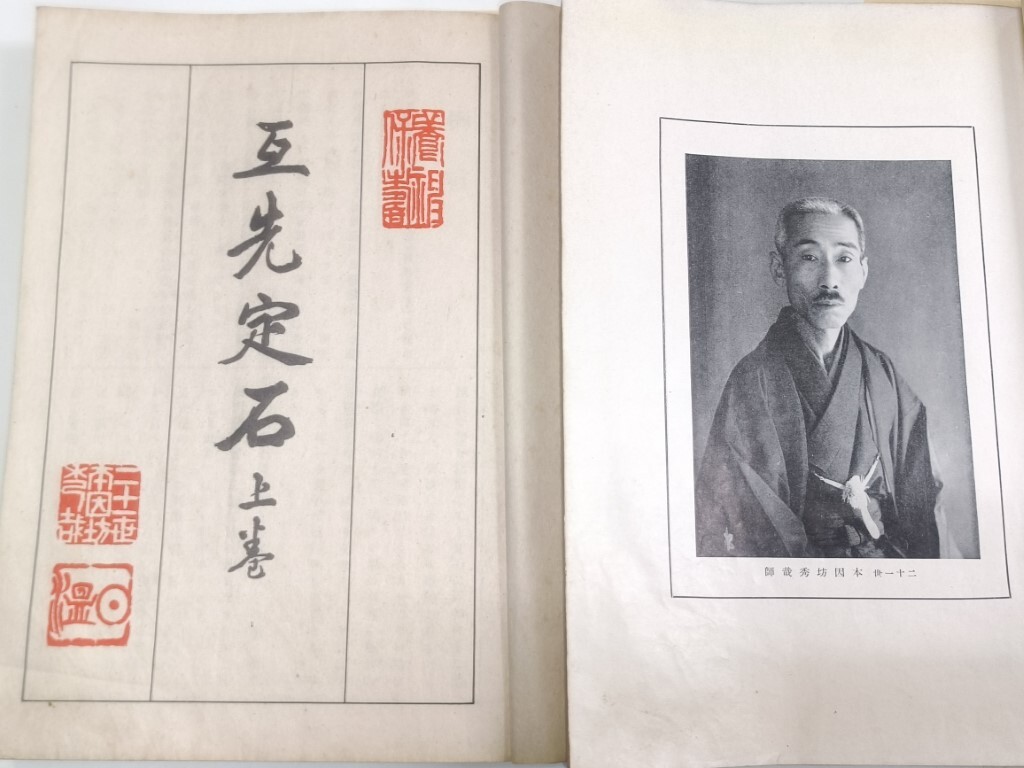 互先定石 上卷
二十一世
本因坊
秀哉
二十一世 本因坊秀哉師